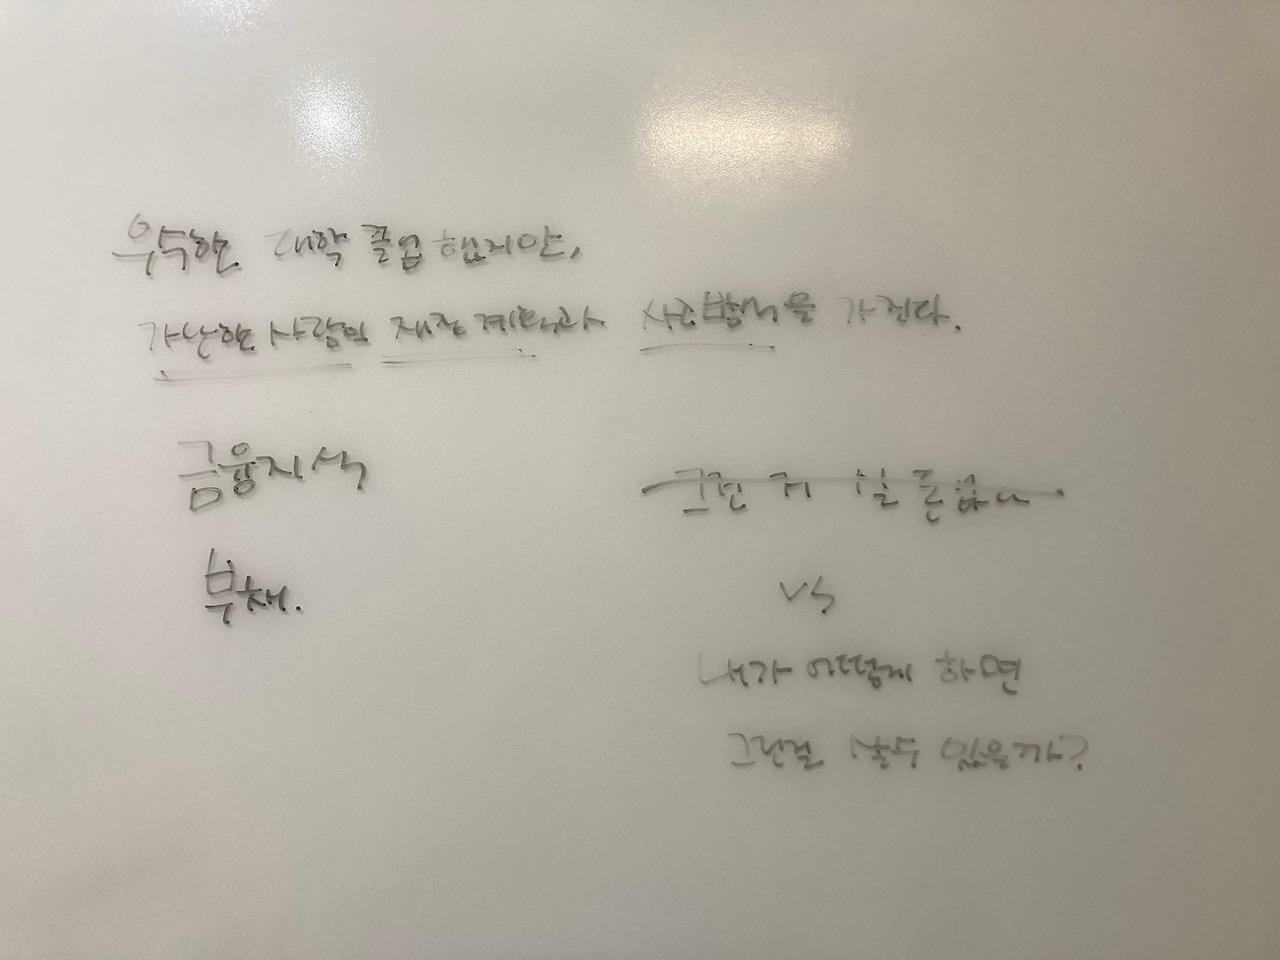 우수한 대학 졸업 했지만,
가난한 사람의 재정 계획과 사고방식을 가진다.
금융지식
부채.
그런 거 살 돈 없다.
vs
내가 어떻게 하면
그런걸 살 수 있을까?